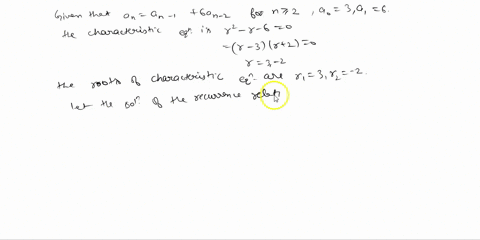 Given that aₙ = aₙ₋₁ + 6aₙ₋₂ for n ≥ 2, a₀ = 3, a₁ = 6.
the characteristic eqⁿ is r² - r - 6 = 0
= (r - 3)(r + 2) = 0
r = 3, -2
the roots of characteristic eqⁿ are r₁ = 3, r₂ = -2.
let the solⁿ of the recurrence relatⁿ